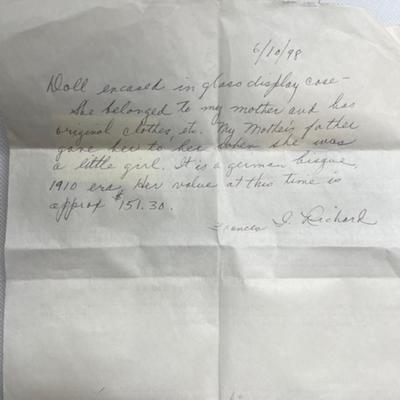 6/10/98
Doll encased in glass display case -
She belonged to my mother and has
original clothes, etc. My Mother's father
gave her to her when she was
a little girl. It is a german bisque,
1910 era. Her value at this time is
approx $151.30.
Frances I. Richard